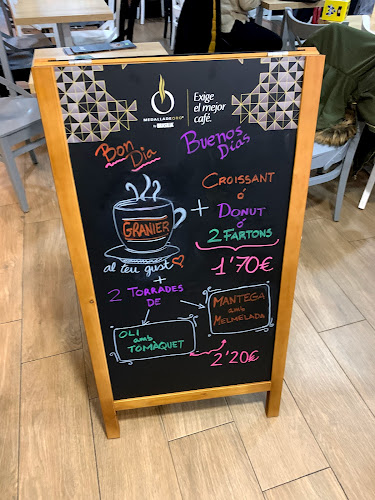 MEDALLA DE ORO®
Exige
el mejor
café.
Bon
Dia
Buenos
Días
GRANIER
al teu gust
+
CROISSANT
ó
DONUT
ó
2 FARTONS
1'70€
+
2 TORRADES
DE
OLI
amb
TOMAQUET
MANTEGA
amb
MELMELADA
2'20€